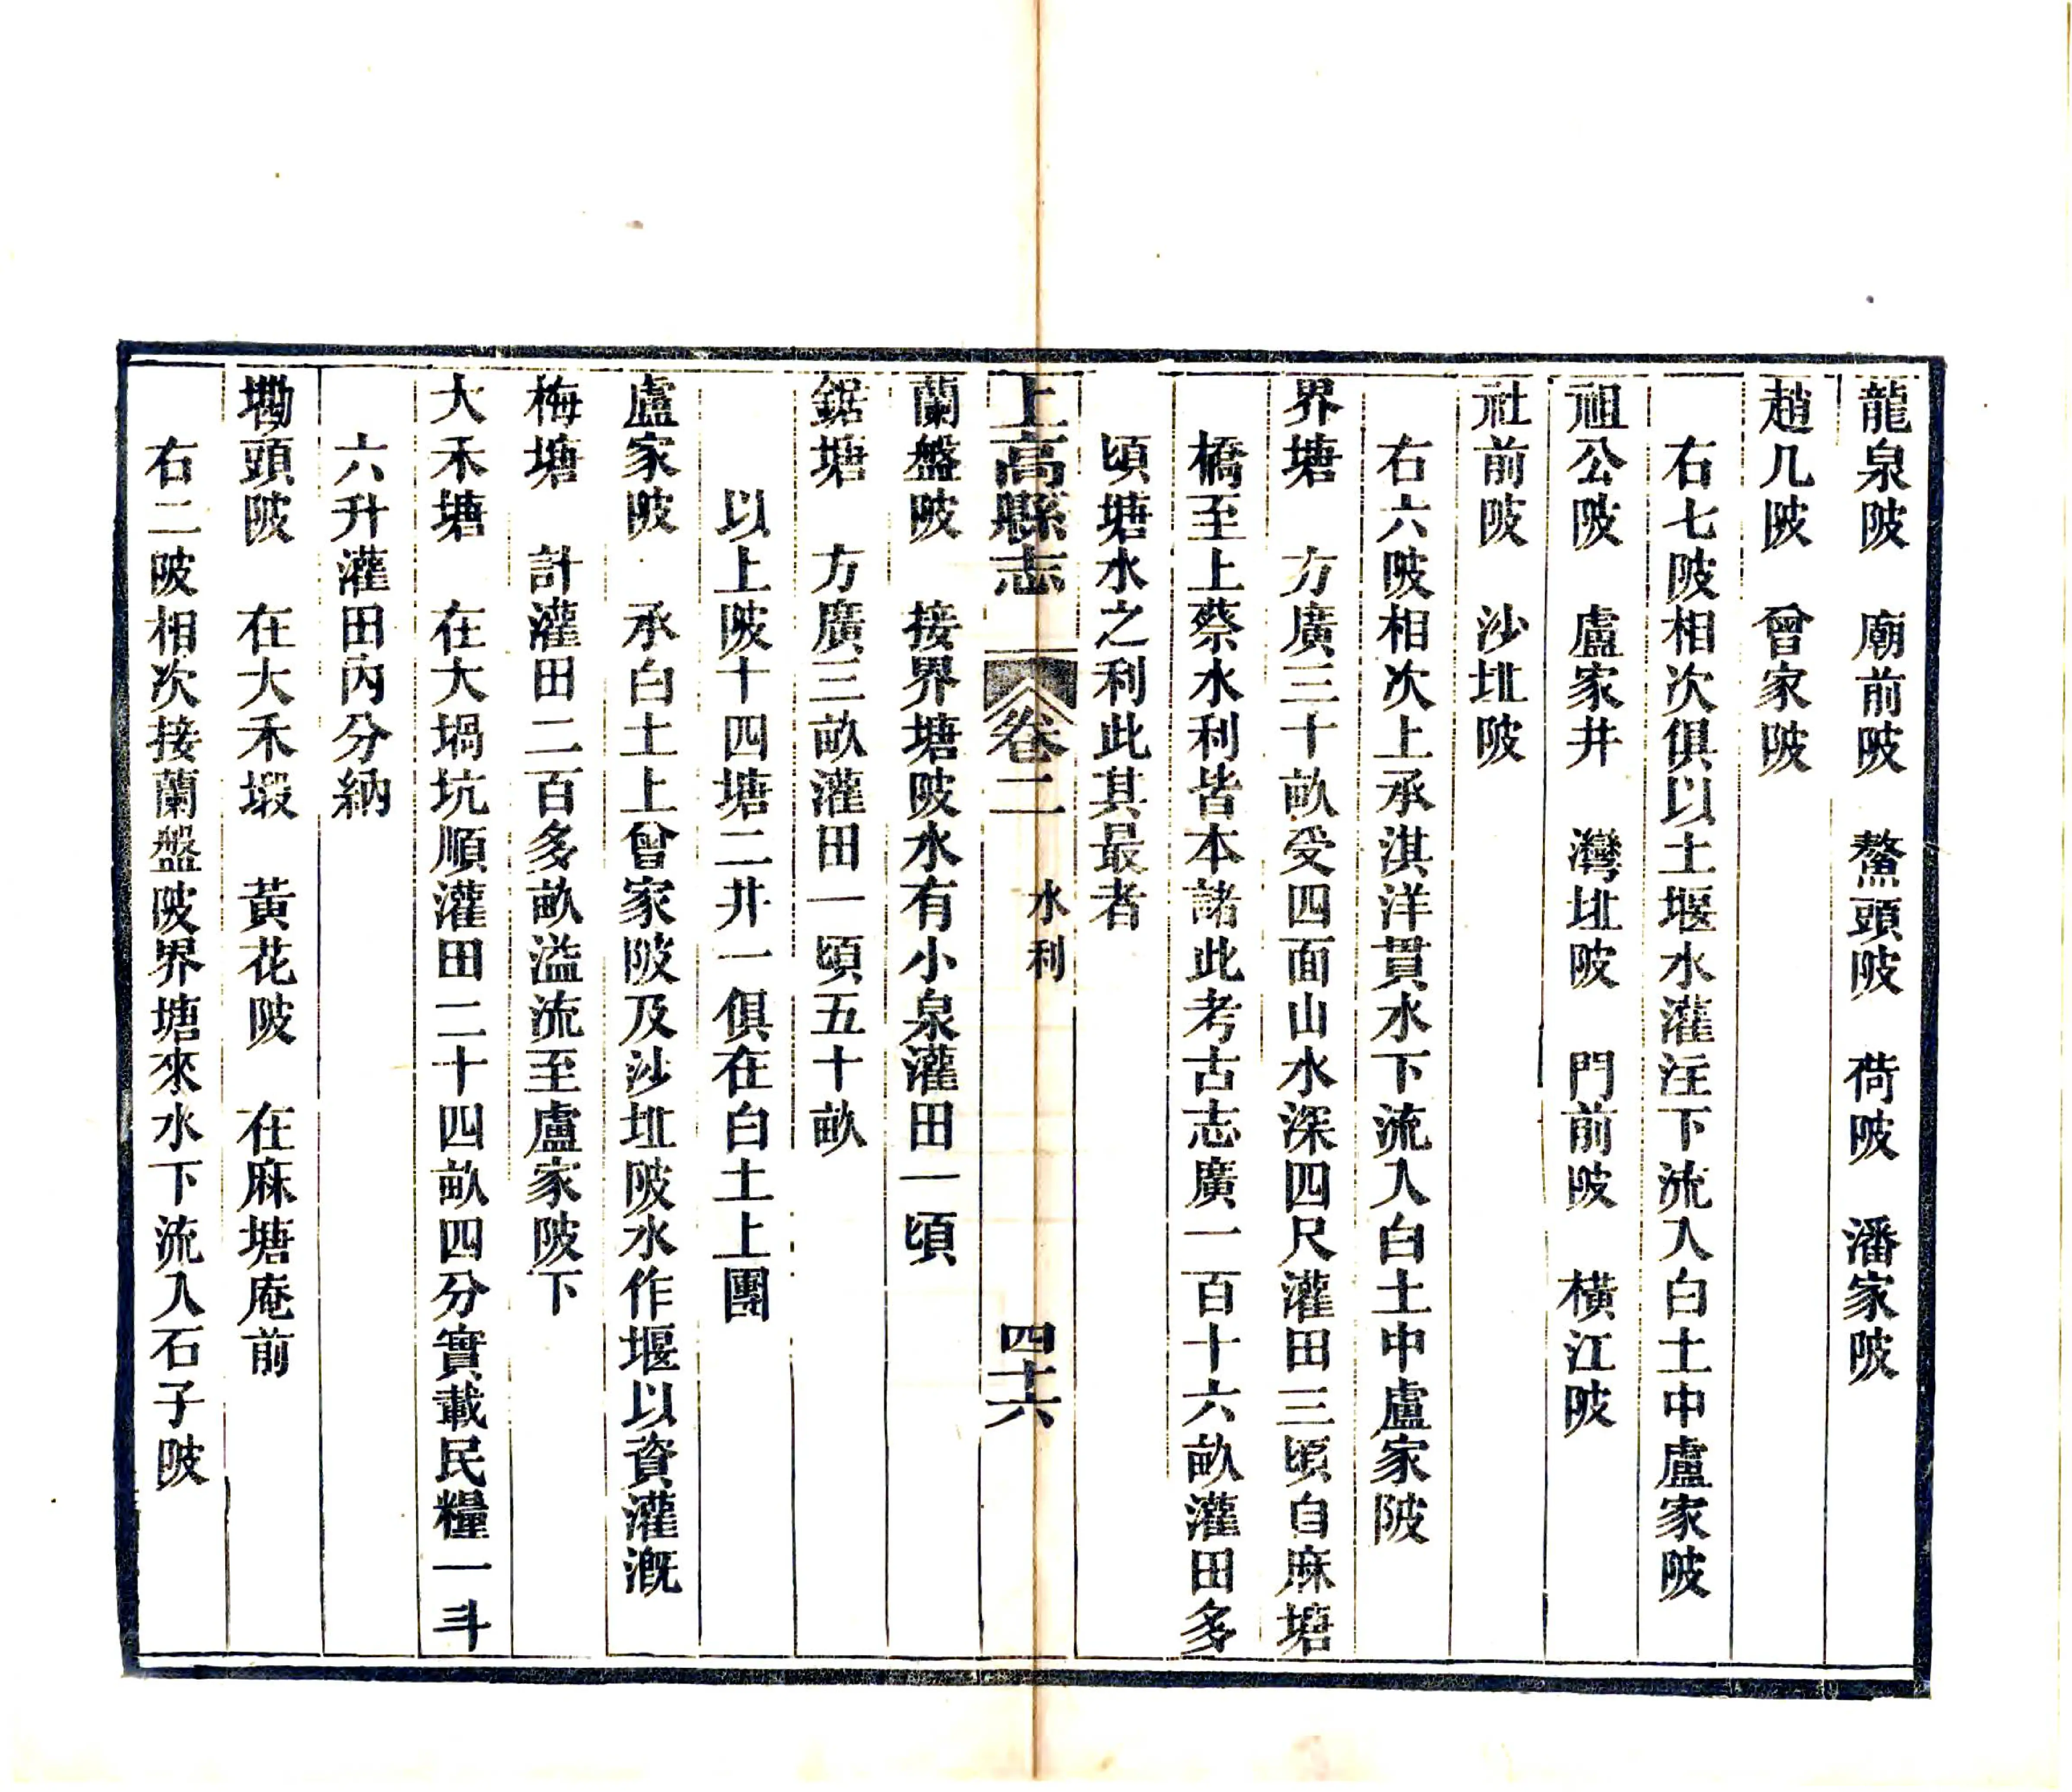 龍泉陂　廟前陂　鰲頭陂　荷陂　潘家陂
趙几陂　曾家陂
右七陂相次俱以土堰水灌注下流入白土中盧家陂
祖公陂　盧家井　灣址陂　門前陂　橫江陂
社前陂　沙址陂
右六陂相次上承淇洋貫水下流入白土中盧家陂
界塘　方廣三十畝受四面山水深四尺灌田三頃自麻塘
橋至上蔡水利皆本諸此考古志廣一百十六畝灌田多
頃塘水之利此其最者
上高縣志　卷二　水利　四十六
蘭盤陂　接界塘陂水有小泉灌田一頃
鋸塘　方廣三畝灌田一頃五十畝
以上陂十四塘二井一俱在白土上團
盧家陂　承白土上曾家陂及沙址陂水作堰以資灌漑
梅塘　計灌田二百多畝溢流至盧家陂下
大禾塘　在大堝坑順灌田二十四畝四分實載民糧一斗
六升灌田內分納
墈頭陂　在大禾塅　黃花陂　在麻塘庵前
右二陂相次接蘭盤陂界塘來水下流入石子陂